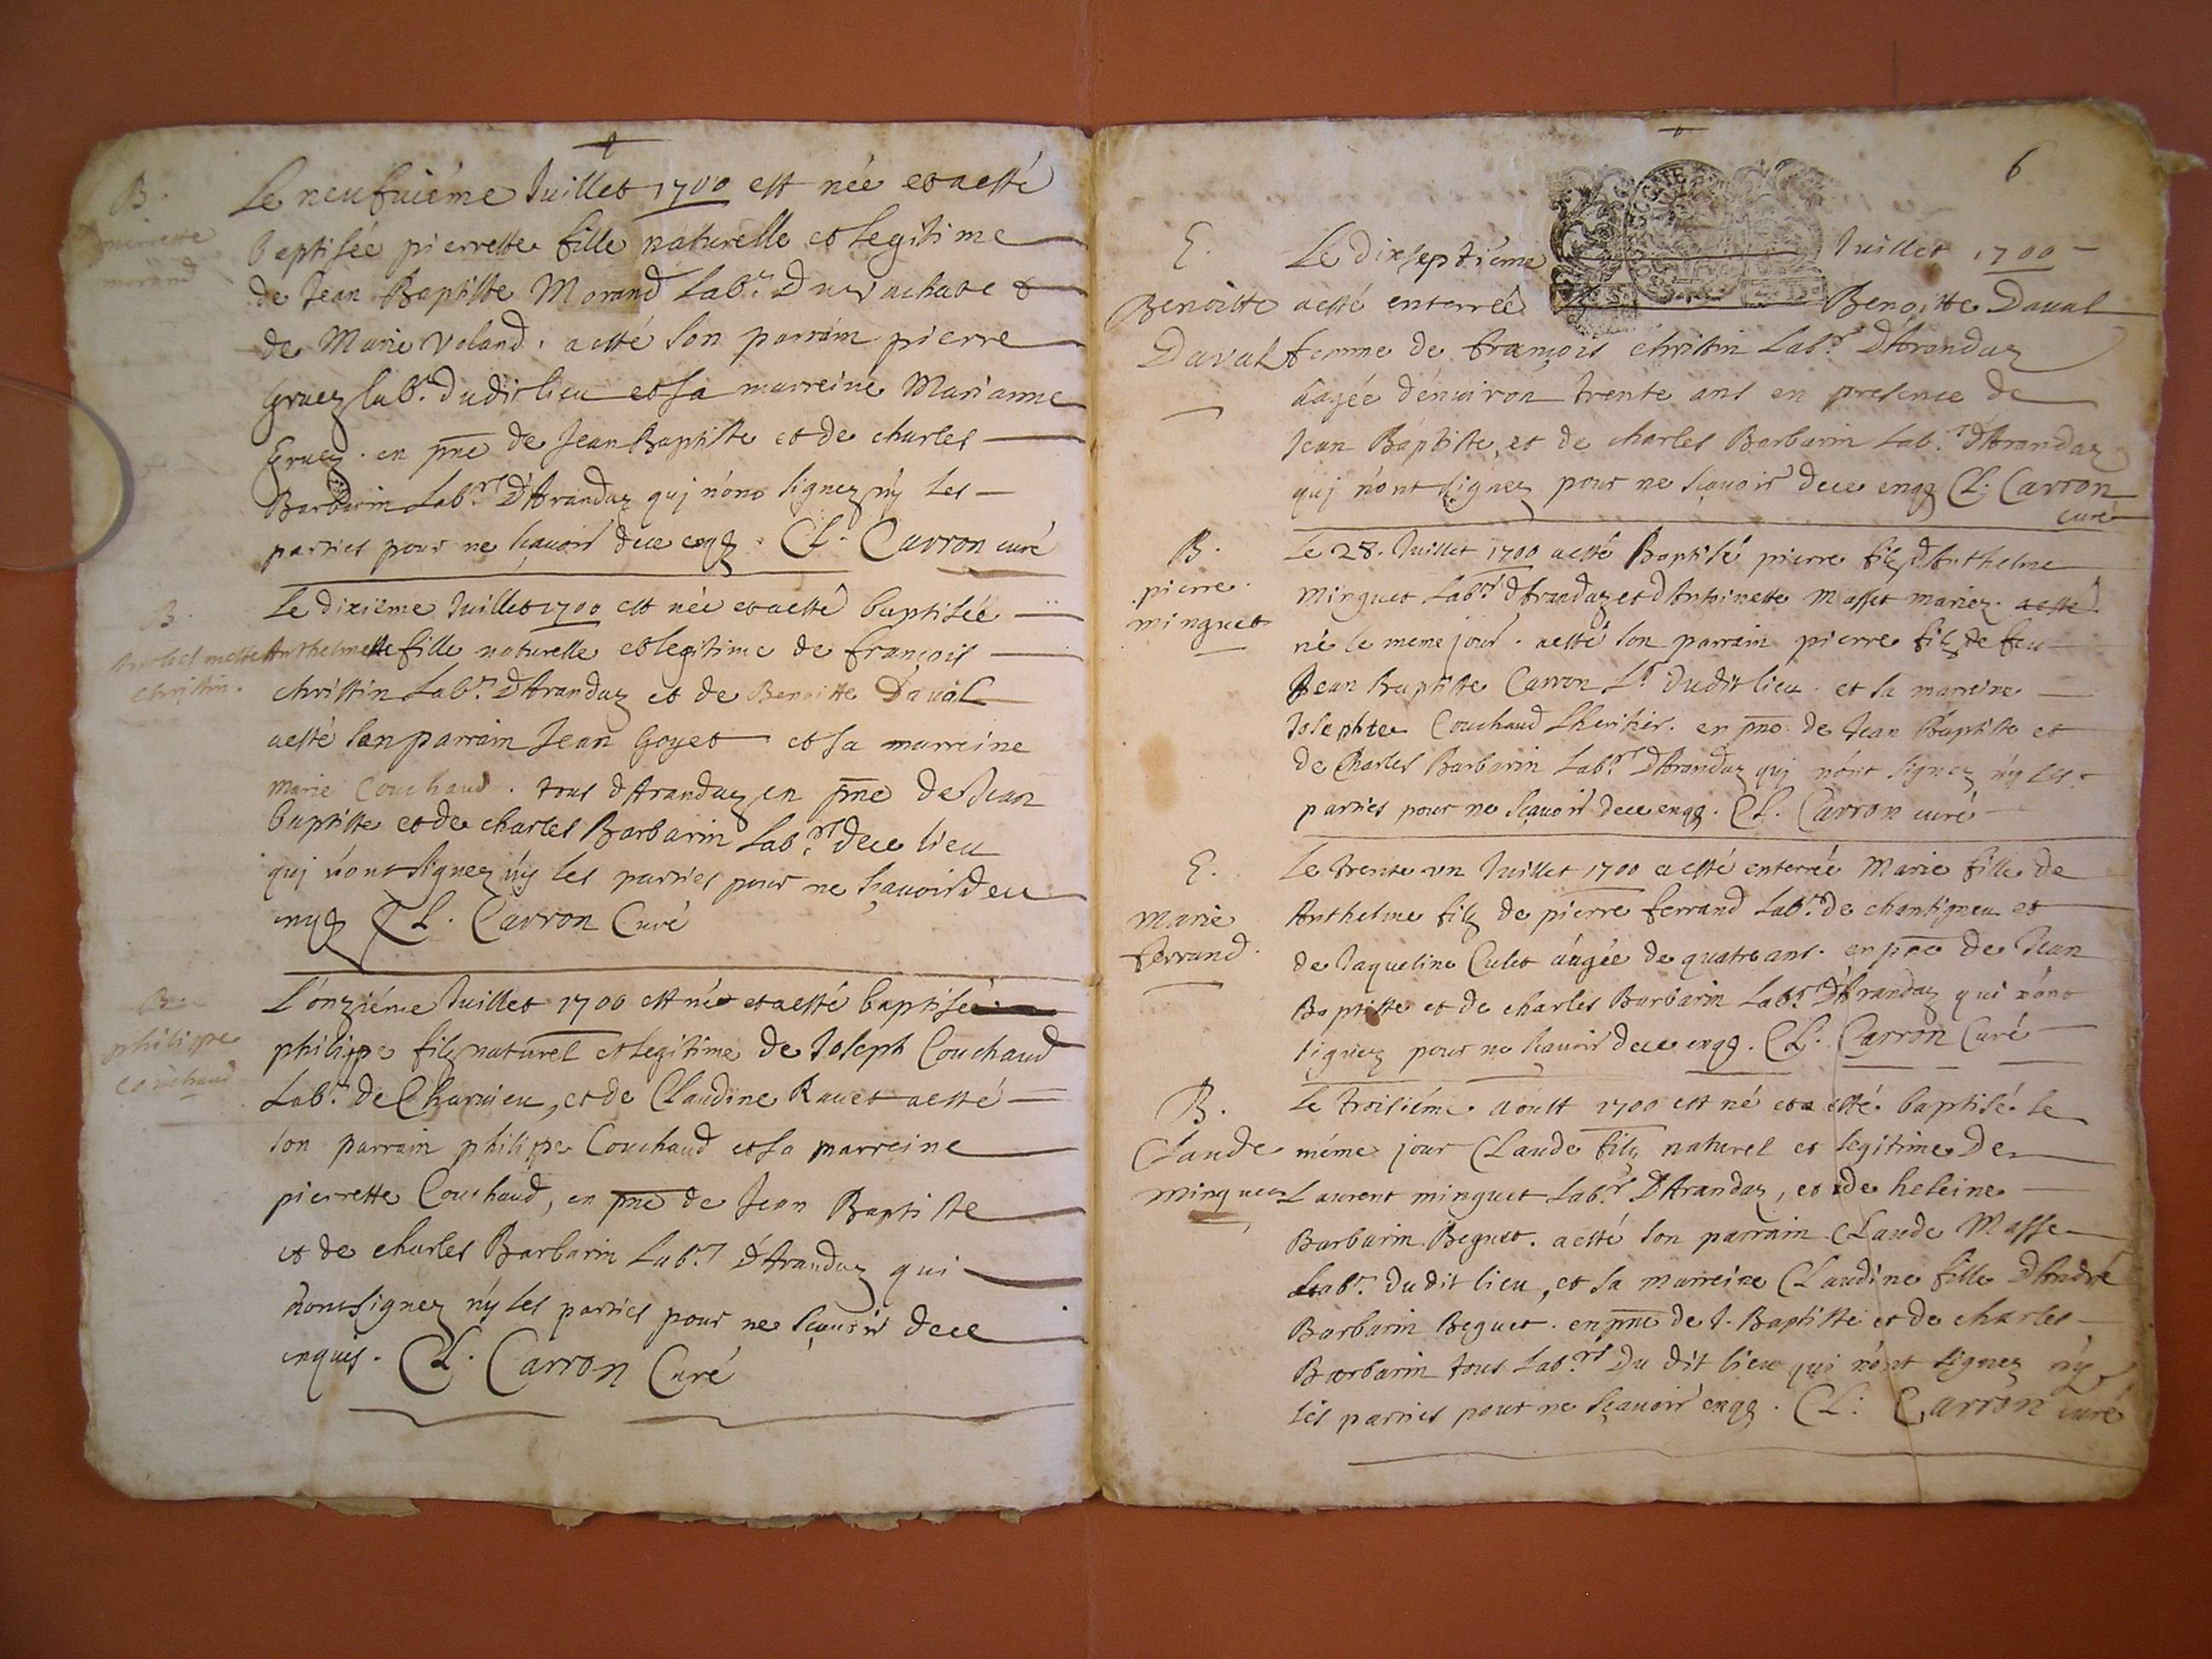 B.
pierrette
morand
Le neufuiéme Juillet 1700 est née et a esté
baptisée pierrette fille naturelle et legitime
de Jean Baptiste Morand Lab.r Du vachat et
de Marie Voland. a esté son parrain pierre
Gruez lab.r dudit lieu et sa marreine Marianne
Gruez. en pñce de Jean Baptiste et de charles
Barbarin Lab.rs D'Arandaz quj n'ont signez ny les
parties pour ne sçauoir de ce enqz. Cl. Carron curé
B.
Anthelmette
christin.
Le dixiéme Juillet 1700 est née et a esté baptisée
Anthelmette fille naturelle et legitime de françois
christin Lab.r D'Arandaz et de Benoitte Daval
a esté son parrain Jean Goyet et sa marreine
Marie Couchaud. tous d'Arandaz en pñce de Jean
baptiste et de charles Barbarin Lab.rs de ce lieu
quj n'ont signez ny les parties pour ne sçauoir de ce
enqz Cl. Carron Curé
B.
philippe
couchaud
L'onziéme Juillet 1700 est né et a esté baptisé
philippe filz naturel et legitime de Joseph Couchaud
Lab.r de Charuieu, et de Claudine Rauet a esté
son parrain philippe Couchaud et sa marreine
pierrette Couchaud, en pñce de Jean Baptiste
et de charles Barbarin Lab.rs d'Arandaz qui
n'ont signez ny les parties pour ne sçauoir de ce
enquis. Cl. Carron Curé
6
E.
Benoitte
Daval
Le dixseptiéme Juillet 1700
a esté enterrée Benoitte Daval
femme de françois christin Lab.r D'Arandaz
aagée d'enuiron trente ans en presence de
Jean Baptiste, et de charles Barbarin Lab.rs d'Arandaz
quj n'ont signez pour ne sçauoir de ce enqz Cl. Carron
curé
B.
pierre
minguet
Le 28. Juillet 1700 a esté Baptisé pierre filz d'Anthelme
Minguet Lab.r d'Arandaz et d'Antoinette Masset mariez. a esté
né le meme jour. a esté son parrain pierre filz de feu
Jean Baptiste Carron L.r dudit lieu. et sa marreine
Josephte Couchaud Lheritier. en pñce de Jean Baptiste et
de Charles Barbarin Lab.rs D'Arandaz quj n'ont signez ny les
parties pour ne sçauoir de ce enqz. Cl. Carron curé
E.
Marie
ferrand.
Le trente vn Juillet 1700 a esté enterrée Marie fille de
Anthelme filz de pierre ferrand Lab.r de chantigneu et
de Jaqueline Culet aagée de quatre ans. en pñce de Jean
Baptiste et de charles Barbarin Lab.rs D'Arandaz qui n'ont
signez pour ne sçauoir de ce enqz. Cl. Carron Curé
B.
Claude
minguet
Le troisiéme aoust 1700 est né et a esté baptisé le
méme jour Claude filz naturel et legitime de
Laurent minguet Lab.r D'Arandaz, et de heleine
Barbarin Beguet. a esté son parrain Claude Masse
Lab.r dudit lieu, et sa marreine Claudine fille D'André
Barbarin Beguet. en pñce de J. Baptiste et de charles
Barbarin tous Lab.rs Du dit lieu qui n'ont signez ny
les parties pour ne sçauoir enqz. Cl. Carron curé